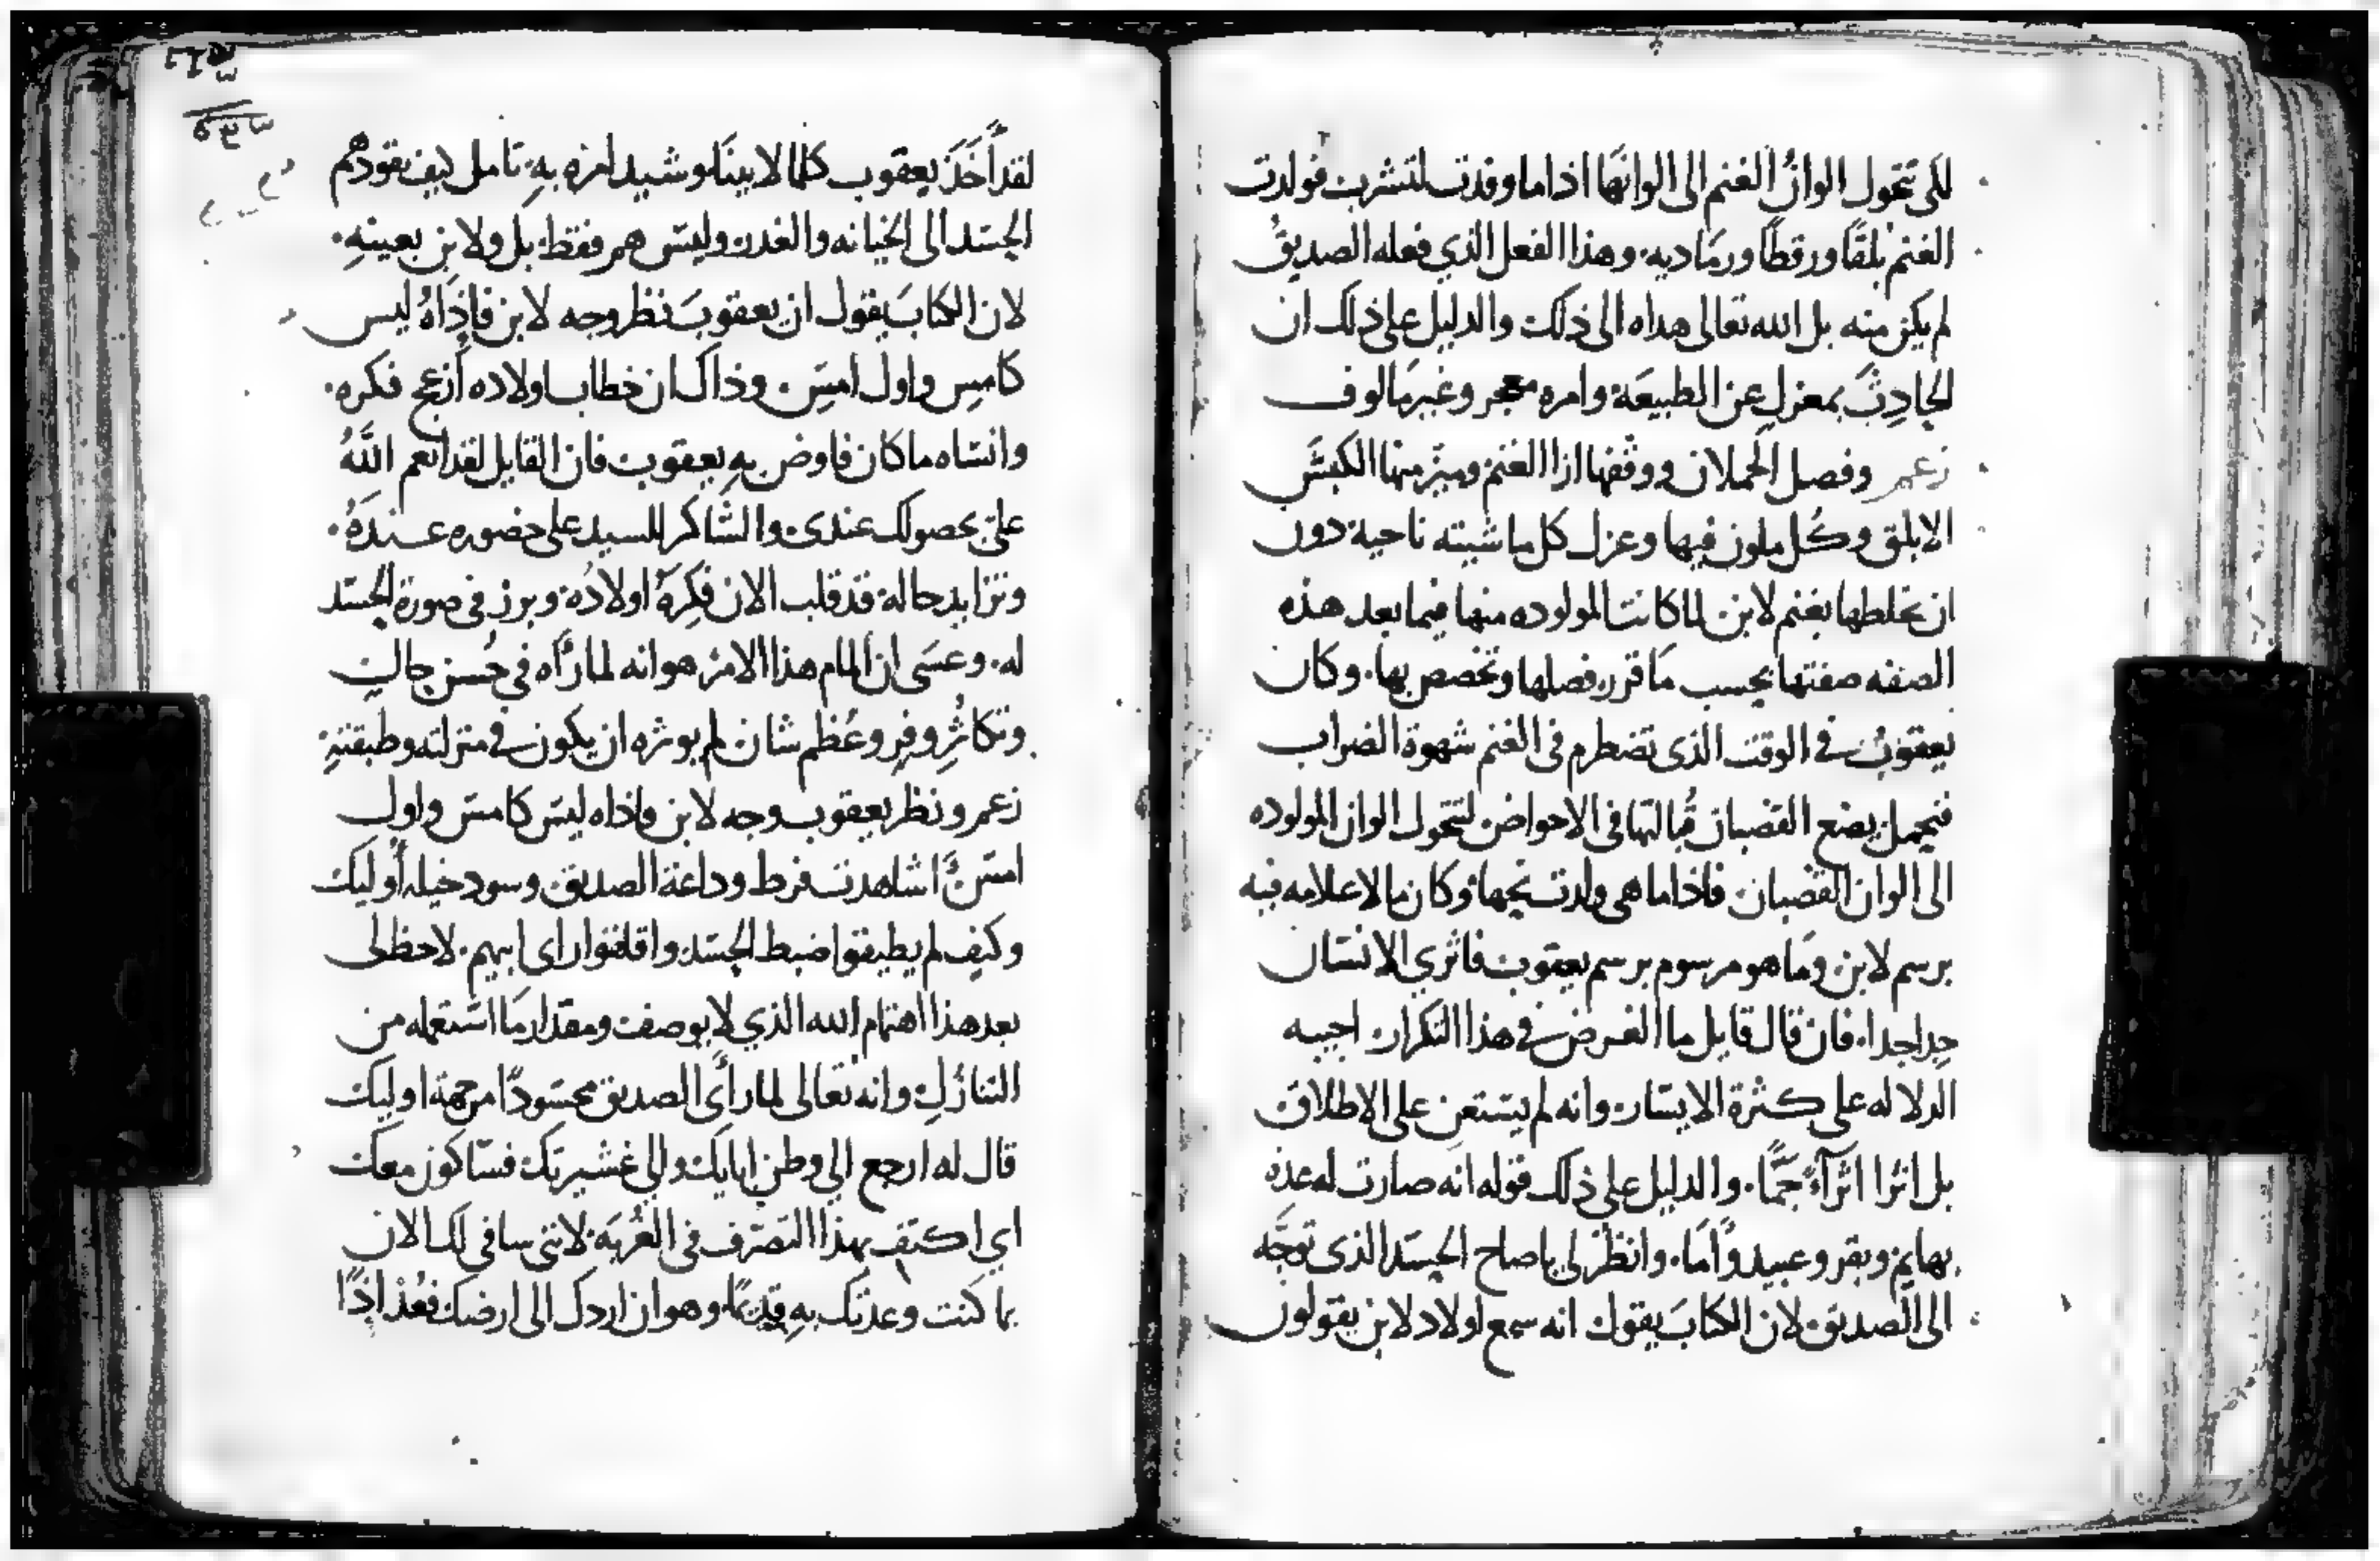 لكى تتحول الوانُ الغنم الى الوانهَا اذا ما وفدت لتشرب فولدت
الغنم بلقًا ورقطًا ورمَاديه. وهذا الفعل الذي فعله الصديقُ
لم يكن منه بل الله تعالى هداه الى ذلك والدليل على ذلك ان
الحادِثَ بمعزلٍ عن الطبيعَة وامره معجر وغير مَالوف
زعم وفصل الحملان ووقفها ازا الغنم وميّز منها الكبشَ
الابلق وكُل ملون فيها وعزل كل ماشيته ناحية دون
ان يخلطها بغنم لابن لما كانت المولوده منها فيما بعد هذه
الصفه صفتها بحسب مَا قرر فصلها وتخصص بها. وكان
يعقوبُ في الوقت الذى تضطرم فى الغنم شهوة الضراب
فتحمل يضع القضبان قُبالتها فى الاحواض لتتحول الوان المولوده
الى الوان القضبان فاذا ما هى ولدت نحها وكان ما لا علامه فيه
برسم لابن ومَا هو مرسوم برسم يعقوب فاثري الانسَان
جِدا جدا. فان قال قايل ما الغرض في هذا التكرار اجيبه
الدلاله على كثرة الايسَار وانه لم يستغنِ على الاطلاق
بل اثرا اثرآءً جَمًّا. والدليل على ذلك قوله انه صارت له عده
بهايم وبقر وعبيد واَمَا. وانظر لى ياصاح الحسَد الذى توجَّه
الى الصديق لان الكتابَ يقول انه سمع اولاد لابن يقولون
لقد اَخَذَ يعقوب كلما لابينَا وشيد امره بهِ تامل كيف يقودهم
الحسَد الى الخيانه والغدر وليسَ هم فقط بل ولابن بعينهِ.
لان الكتابَ يقول ان يعقوبَ نظر وجه لابن فاذِاهُ ليس
كامسِ واول امسِ. وذاك ان خطاب اولاده اَزعج فكره.
وانسَاه ما كان فاوض بهِ يعقوب فان القايل لقد انعم اللَّهُ
علىّ بحصولك عندى والشاكر للسيد على حضوره عندَهُ.
وتزايد حاله قد قلب الان فكِرَهُ اولادُه وبرز فى صورة الحسَد
له. وعسَى ان المام هذا الامر هو انه لما رَأه في حُسن حالٍ
وتكاثُرٍ وفرٍ وعُظم شان لم يوثره ان يكون في منزلته وطبقتهِ
زعم ونظر يعقوب وجه لابن فاذاه ليسَ كامسَ واول
امسَ اشاهدت فرط وداعة الصديق وسود اُوليك
وكيف لم يطيقوا ضبط الحسَد واقلقوا راى ابيهم. لاحظ لى
بعد هذا اهتمام الله الذي لا يوصف ومقدار مَا استعمله من
التنازُلِ وانه تعالى لما رأَى الصديق محسَودًا من جهة اوليك
قال له ارجع الي وطن ابايك والي عشيرتك فسَاكون معك
اي اكتفِ بهذا التصرّف فى الغُربَة لاننى ساڧى لك الان
بما كنت وعدتك بهِ قديمًا وهو ان اردك الى ارضك فعُدْ اذًا